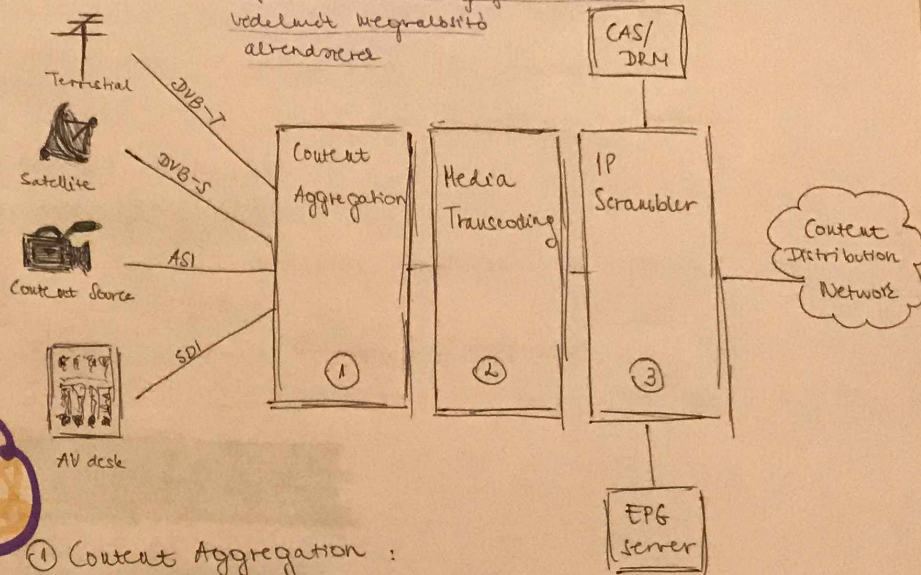 védelmét megvalósító
alrendszerek
CAS/
DRM
Terristial
DVB-T
Satellite
DVB-S
Content Source
ASI
AV desk
SDI
Content
Aggregation
1
Media
Transcoding
2
IP
Scrambler
3
Content
Distribution
Network
EPG
server
1 Content Aggregation :